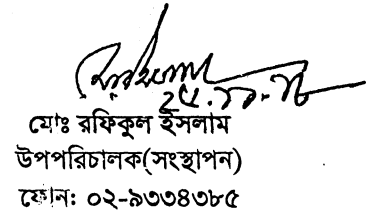 ২৫.১১.১৮
মোঃ রফিকুল ইসলাম
উপপরিচালক(সংস্থাপন)
ফোন: ০২-৯৩৩৪৩৮৫